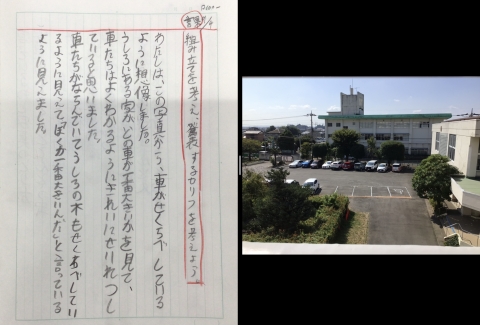 組み立てを考え、発表するかりつを考えよう。
わたしは、この写真から、車がせくらべしている
ように想像しました。
うしろにある家が、どの車が一番大きいかを見て、
車たちはよくわかるようにきれいにせいれつし
ていると思いました。
車たちがならんでいてうしろの木もせくらべしてい
るように見えて「ぼくが一番大きいんだ」と言っている
ように見えました。